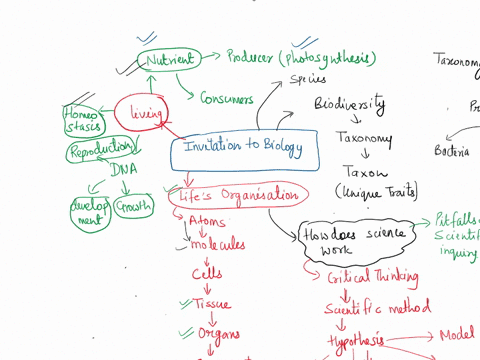 Nutrient
Producer (photosynthesis)
Species
Taxonomy
Consumers
Homeo
stasis
Living
Biodiversity
Reproduction
Invitation to Biology
Taxonomy
Bacteria
DNA
Taxon
(Unique Traits)
Develop
ment
Growth
Life's Organisation
Atoms
Molecules
How does science
work
Pitfalls
Scientif
inquiry
Cells
Critical Thinking
Tissue
Scientific method
Organs
Hypothesis
Model